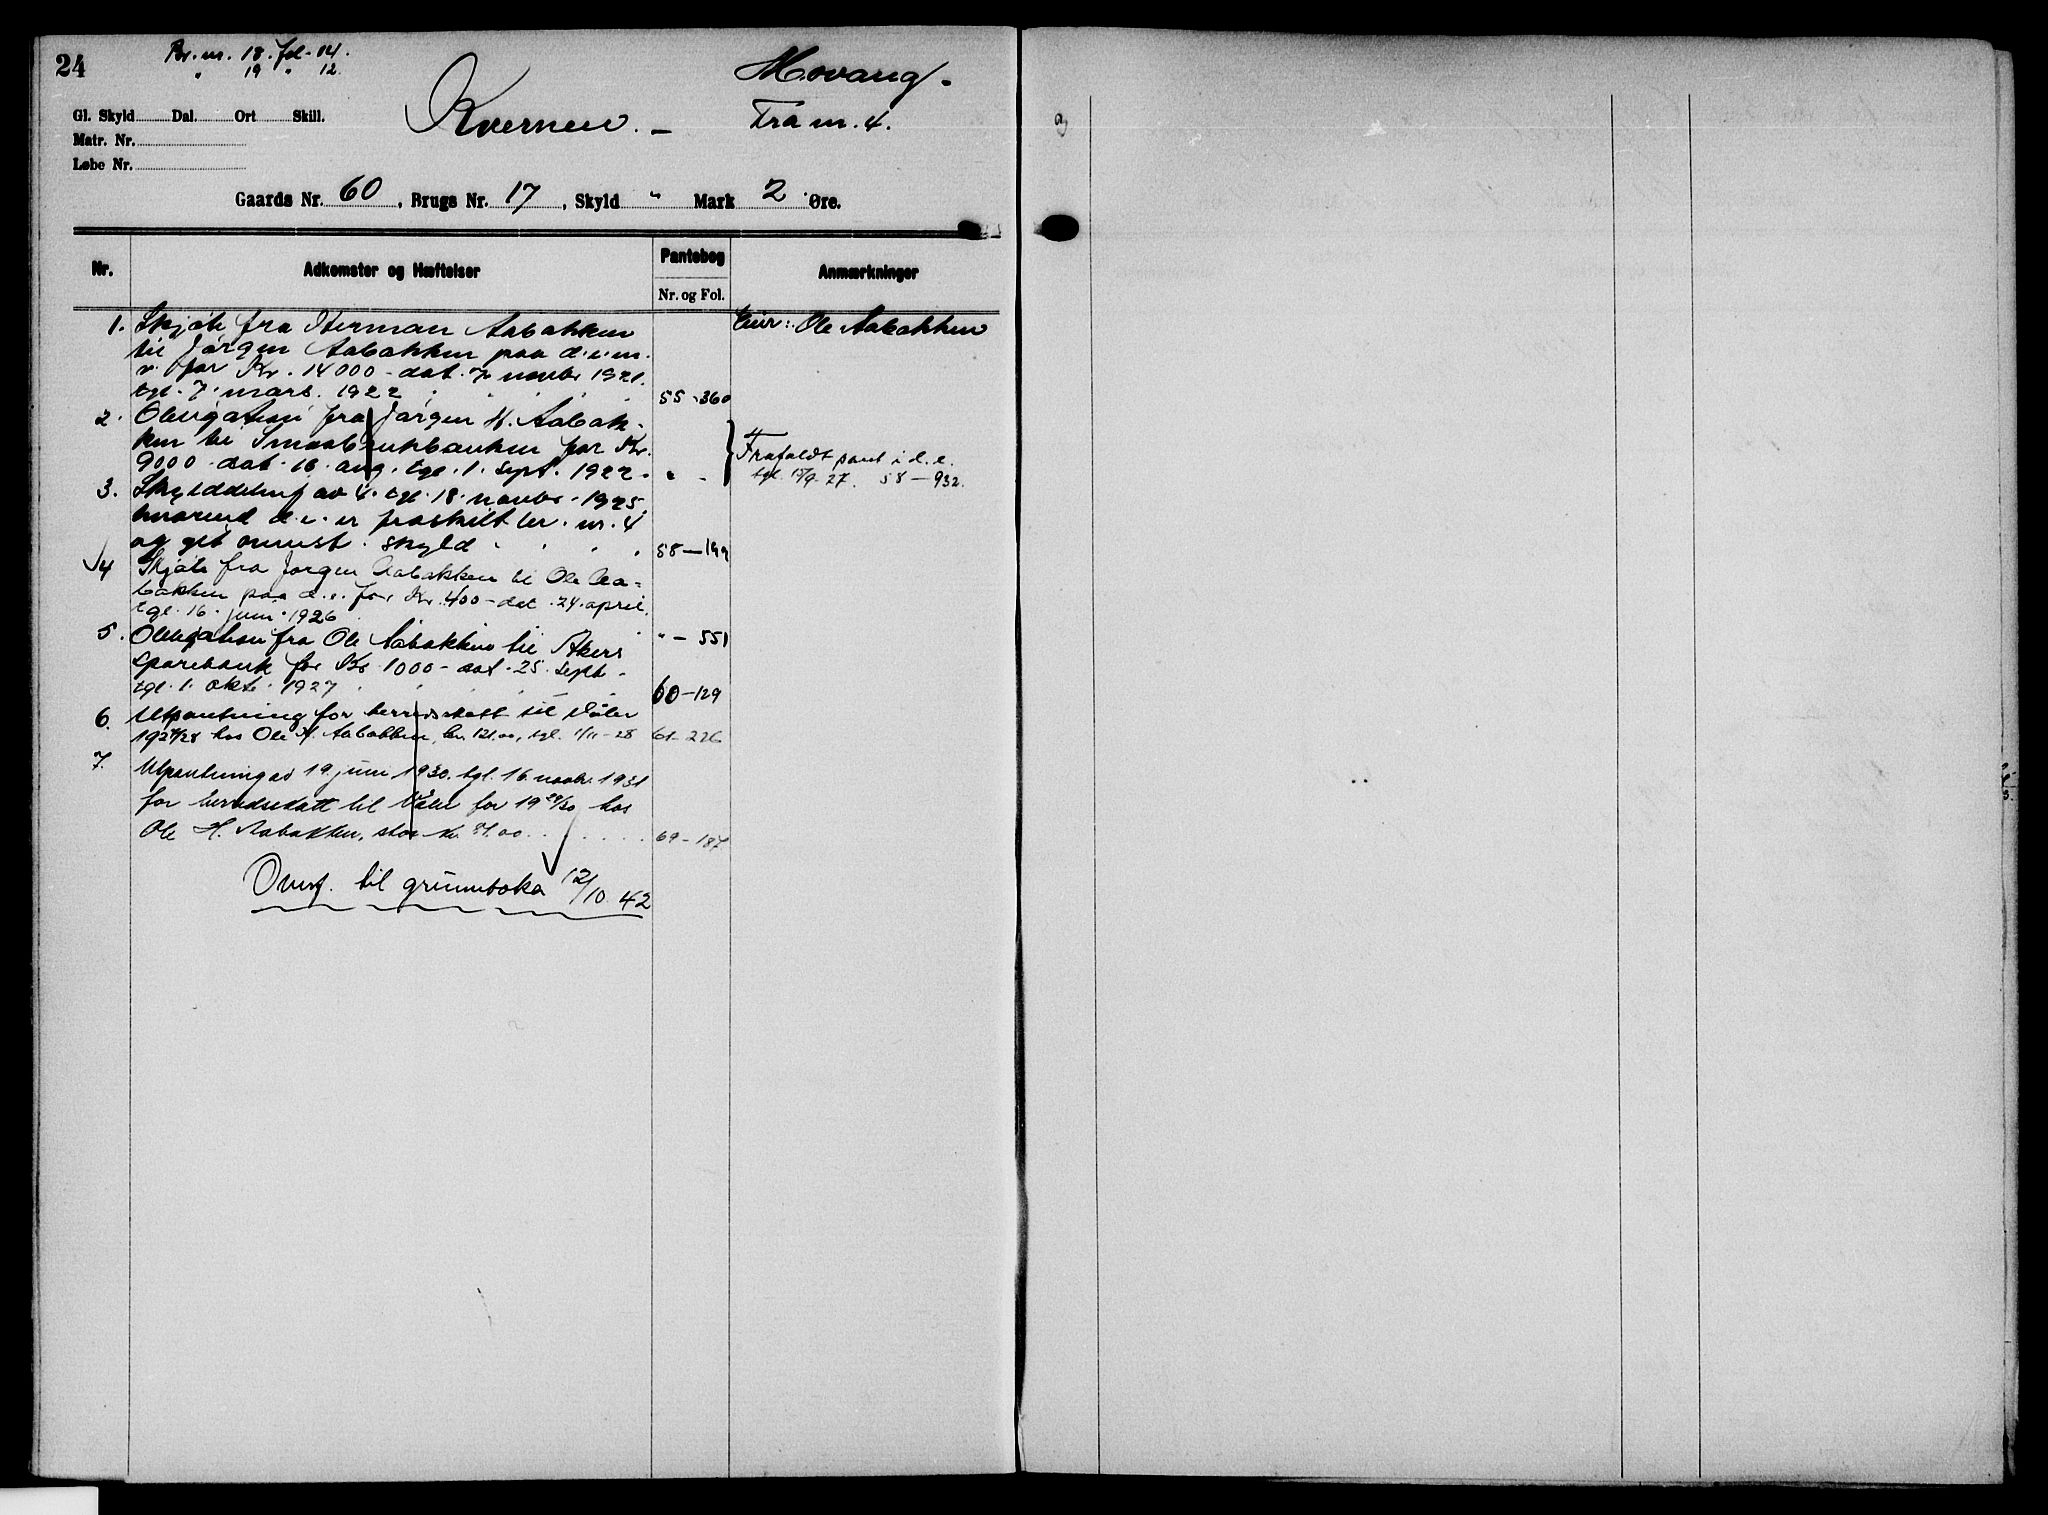 24
Br. nr. 18. fol. 14.
" 19 " 12.
Movang -
Kvernen. -
Fra nr. 4.
Gl. Skyld Dal. Ort Skill.
Matr. Nr.
Løbe Nr.
Gaards Nr. 60, Brugs Nr. 17, Skyld " Mark 2 Øre.
Nr. Adkomster og Hæftelser Pantebog Anmærkninger
Nr. og Fol.
1. Skjøte fra Herman Aabakken Eier: Ole Aabakken
til Jørgen Aabakken paa d. e. m.
v. for Kr. 14000 - dat. 7 novbr 1921.
tgl. 7. mars. 1922 55 - 360
2. Obligation fra Jørgen H. Aabak-
ken til Smaabrukbanken for Kr.
9000 - dat. 16. aug. tgl. 1. sept. 1922 - " -
Frafaldt pant i d. e.
tgl. 15/9-27. 58 - 932.
3. Skylddeling av 4. tgl. 18. novbr. 1925.
hvorved d. e. er fraskilt br. nr. 4
og git ovenst. skyld 58 - 199
4 Skjøte fra Jørgen Aabakken til Ole Aa-
bakken paa d. e. for Kr. 400 - dat. 24. april.
tgl. 16. juni. 1926
5. Obligation fra Ole Aabakken til Akers " - 551
Sparebank for Kr 1000 - dat. 25. sept.
tgl. 1. okt. 1927 60 - 129
6. Utpantning for herredsskatt til Våler
1927/28 hos Ole H. Aabakken, kr. 121.00, tgl. 1/11-28 61 - 226
7. Utpantning av 19. juni 1930. tgl. 16. novbr. 1931
for herredsskatt til Våler for 1929/30 hos
Ole H. Aabakken, stor kr. 81.00 69 - 187
Overf. til grunnboka 12/10 42